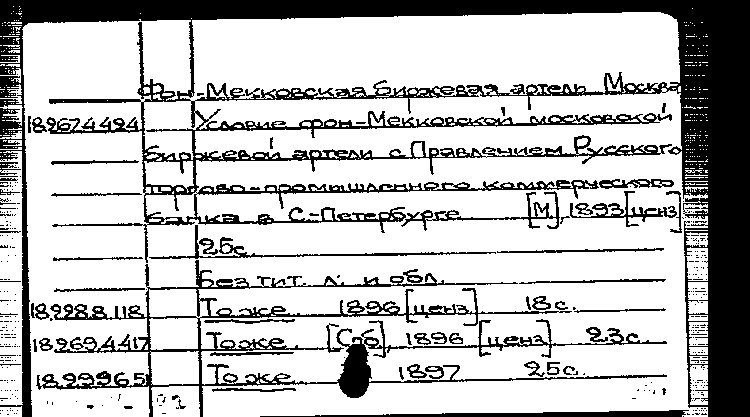 Фон-Мекковская биржевая артель Москва
18.267.4.494 Условие фон-Мекковской московской
биржевой артели с Правлением Русского
торгово-промышленного коммерческого
банка в С-Петербурге [М], 1893 [ценз]
25с.
Без тит. л. и обл.
18.228.8.118 То же. 1896 [ценз]. 18с.
18.269.4.417 То же. [Спб], 1896 [ценз]. 23с.
18.299.6.5 То же. 1897 25с.